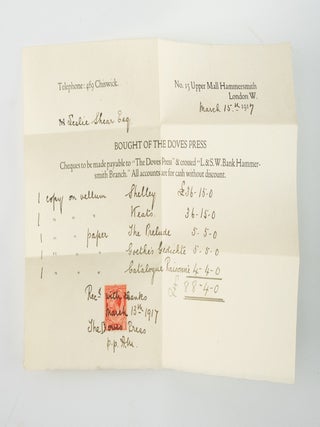 Telephone: 469 Chiswick.
No. 15 Upper Mall Hammersmith
London W.
March 15th 1917
Leslie Shear Esq
BOUGHT OF THE DOVES PRESS
Cheques to be made payable to "The Doves Press" & crossed "L. & S.W. Bank Hammer-
smith Branch." All accounts are for cash without discount.
1 copy on vellum Shelley £36-15-0
1 " " " Keats 36-15-0
1 " " paper The Prelude 5-5-0
1 " " " Goethes Gedichte 5-5-0
1 " " " Catalogue Raisonné 4-4-0
£ 88-4-0
Recd with thanks
March 15th 1917
The Doves Press
p.p.